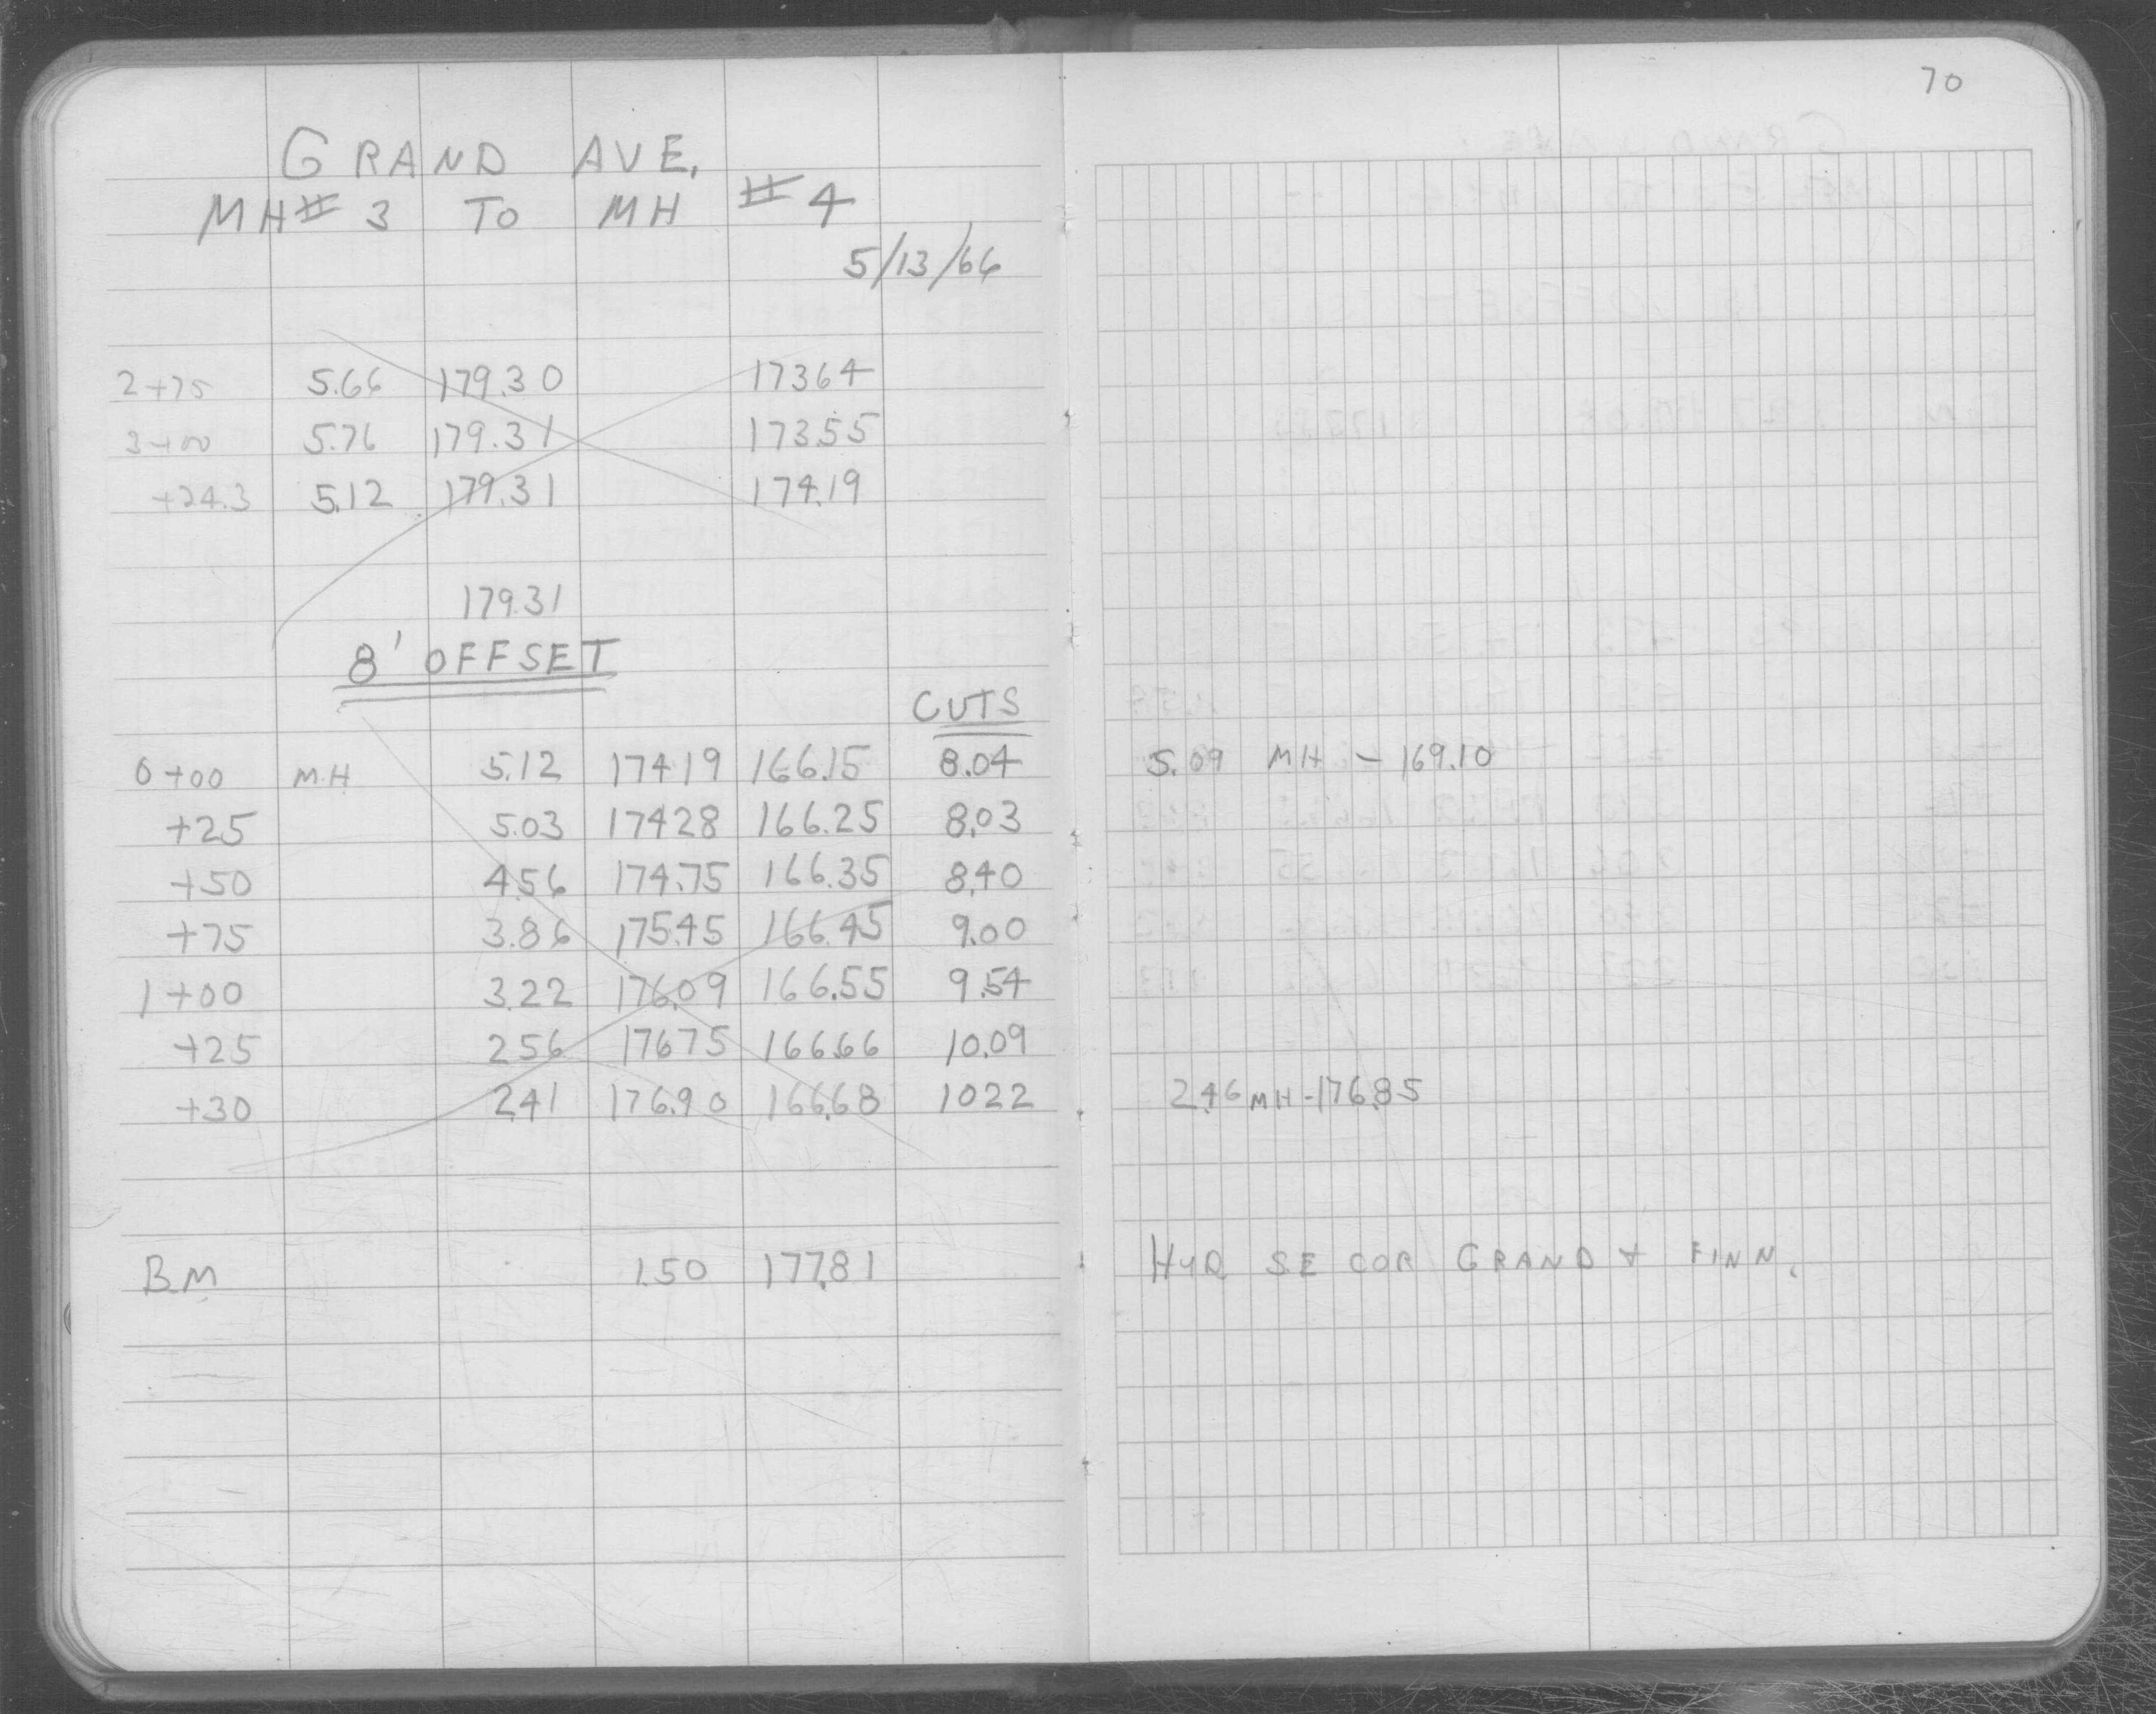 70
GRAND AVE.
MH# 3 TO MH #4
5/13/66
2+75 5.66 179.30 173.64
3+00 5.76 179.31 173.55
+24.3 5.12 179.31 174.19
179.31
8' OFFSET
CUTS
0+00 M.H. 5.12 174.19 166.15 8.04 5.09 MH - 169.10
+25 5.03 174.28 166.25 8.03
+50 4.56 174.75 166.35 8.40
+75 3.86 175.45 166.45 9.00
1+00 3.22 176.09 166.55 9.54
+25 2.56 176.75 166.66 10.09
+30 2.41 176.90 166.68 10.22 2.46 MH - 176.85
B.M. 1.50 177.81 HYD SE COR GRAND + FINN.